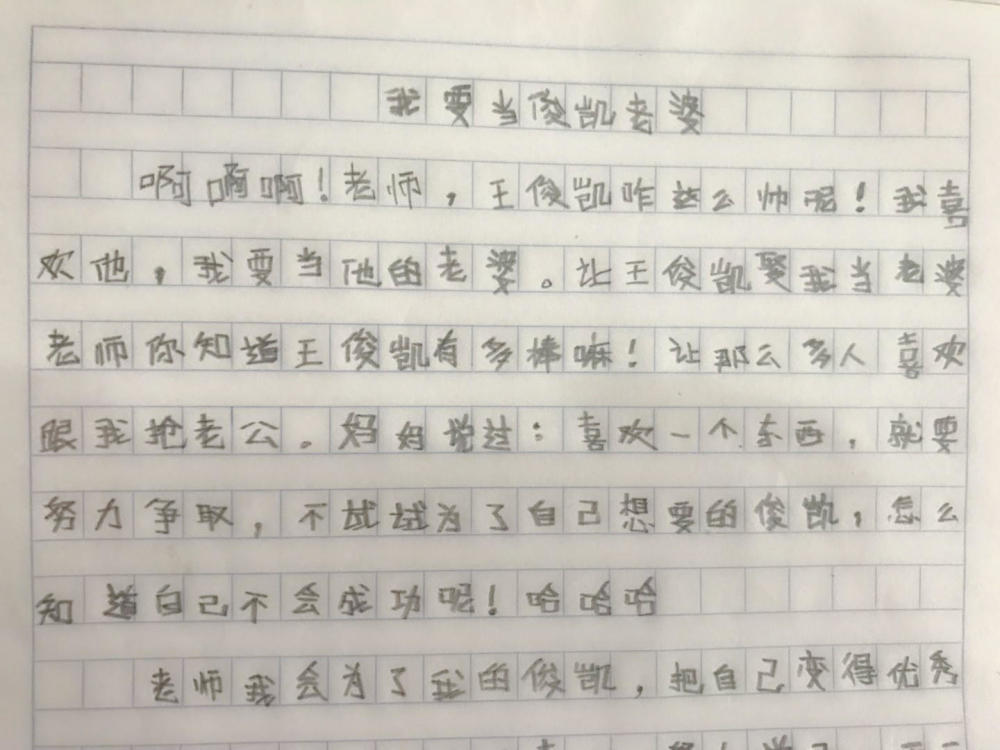 我要当俊凯老婆
啊啊啊！老师，王俊凯咋这么帅呢！我喜
欢他，我要当他的老婆。让王俊凯娶我当老婆
老师你知道王俊凯有多棒嘛！让那么多人喜欢
跟我抢老公。妈妈说过：喜欢一个东西，就要
努力争取，不试试为了自己想要的俊凯，怎么
知道自己不会成功呢！哈哈哈
老师我会为了我的俊凯，把自己变得优秀